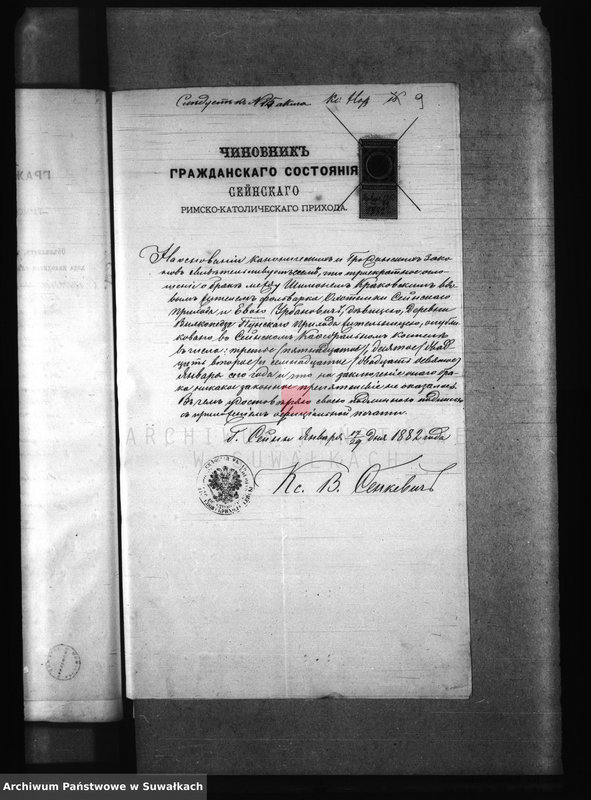 № 9
ЧИНОВНИКЪ
ГРАЖДАНСКАГО СОСТОЯНІЯ
СЕЙНСКАГО
РИМСКО-КАТОЛИЧЕСКАГО ПРИХОДА.
На основаніи каноническихъ и Гражданскихъ Зако-
новъ свидѣтельствуетъ симъ, что троекратное огла-
шеніе о бракѣ между Шимономъ Краковскимъ вдо-
вымъ жителемъ фольварка Сейнскаго
Прихода и Евою Урбановичъ, дѣвицею, Деревни
Пунскаго Прихода жительницею, опубли-
ковано въ Сейнскомъ Каѳедральномъ костелѣ
въ числа: третье /пятнадцатое/, десятое /двад-
цать второе/ и семнадцатое /двадцать девятое/
Января сего года и что на заключеніе онаго бра-
ка никаких законное препятствіе не оказалось
Въ чемъ удостовѣряю своею подписью
съ приложеніемъ печати
Г. Сейны Января 17/29 дня 1882 года
Кс. В. Сенкевичъ
ARCHIWUM PAŃSTWOWE
W SUWAŁKACH
Archiwum Państwowe w Suwałkach